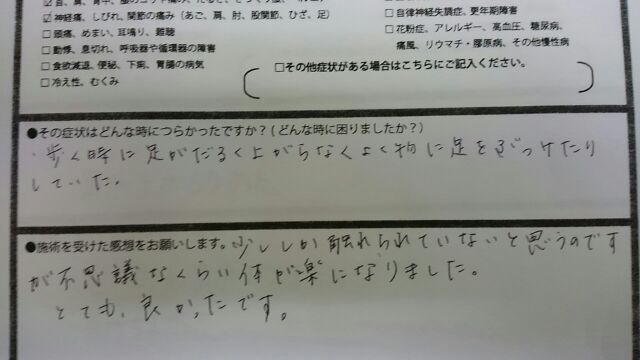 ☑神経痛、しびれ、関節の痛み(あご、肩、肘、股関節、ひざ、足)
□頭痛、めまい、耳鳴り、難聴
□動悸、息切れ、呼吸器や循環器の障害
□食欲減退、便秘、下痢、胃腸の病気
□冷え性、むくみ
□自律神経失調症、更年期障害
□花粉症、アレルギー、高血圧、糖尿病、
痛風、リウマチ・膠原病、その他慢性病
□その他症状がある場合はこちらにご記入ください。
●その症状はどんな時につらかったですか?(どんな時に困りましたか?)
歩く時に足がだるく上がらなくよく物に足をぶつけたり
していた。
●施術を受けた感想をお願いします。少ししか触れられていないと思うのです
が不思議なくらい体が楽になりました。
とても、良かったです。